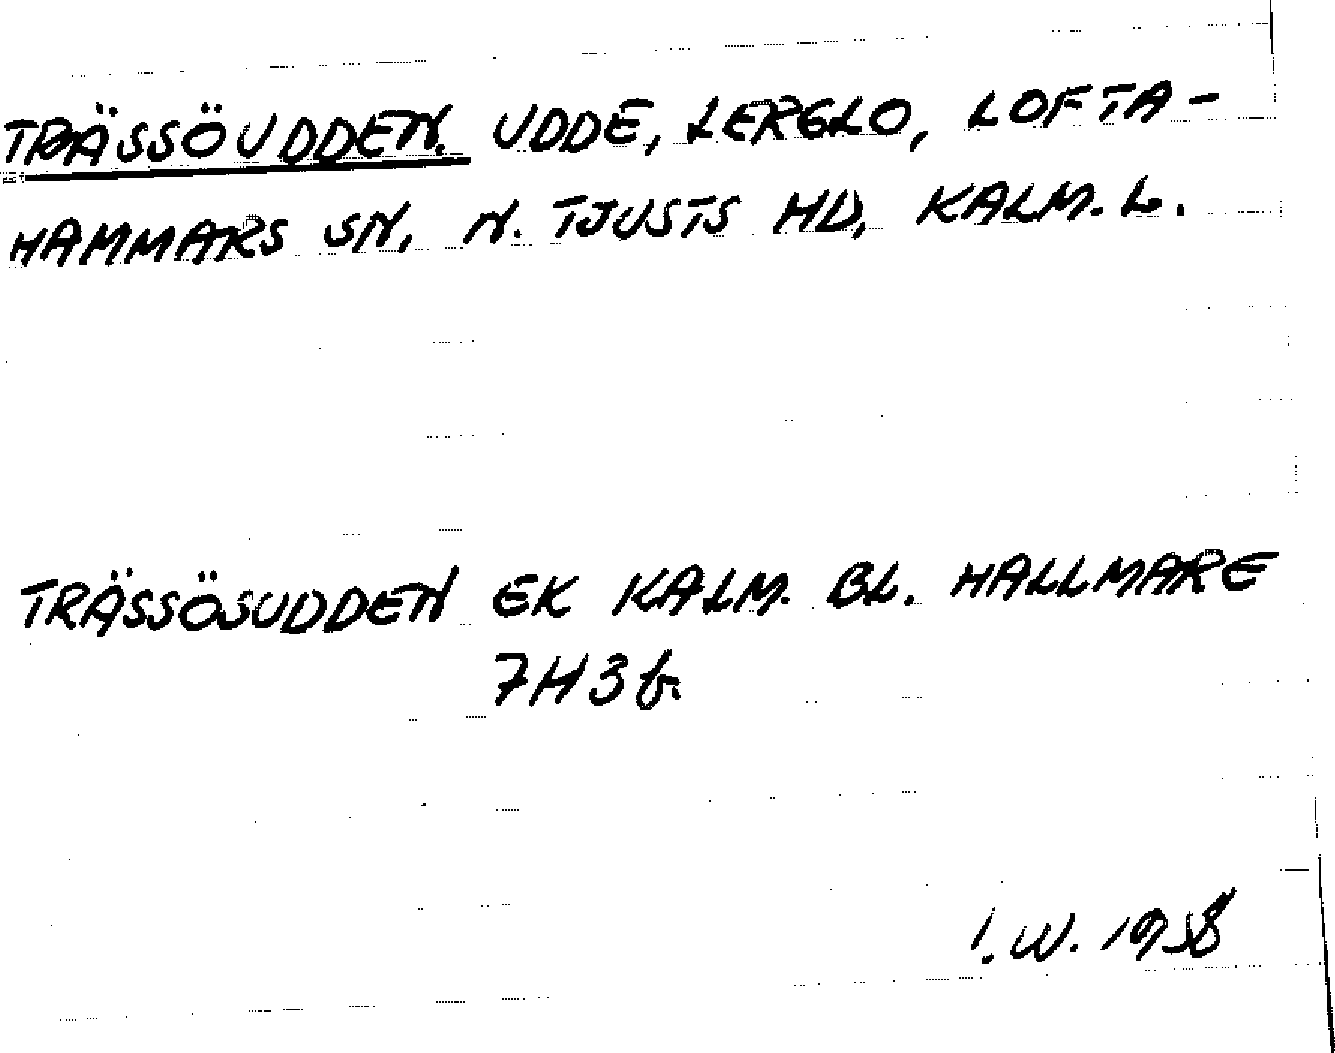 TRÄSSÖUDDEN. UDDE, LERGLO, LOFTA-
HAMMARS SN, N. TJUSTS HD, KALM. L.
TRÄSSÖSUDDEN EK KALM. BL. HALLMARE
7H3b.
I. W. 1958